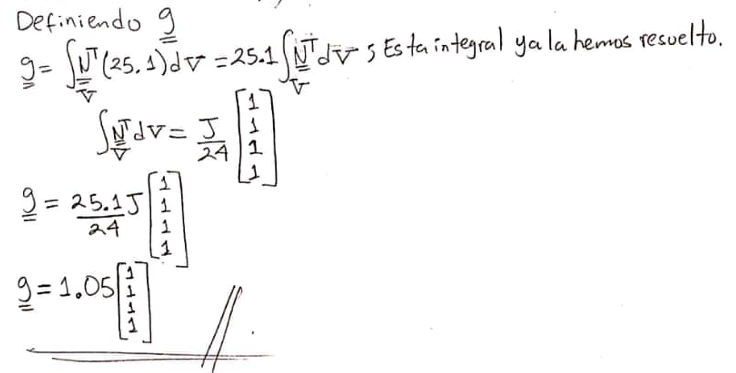 Definiendo g
g = ∫_V N^T (25.1) dV = 25.1 ∫_V N^T dV ; Esta integral ya la hemos resuelto.
∫_V N^T dV = J/24 [1 1 1 1]
g = 25.1J/24 [1 1 1 1]
g = 1.05 [1 1 1 1]